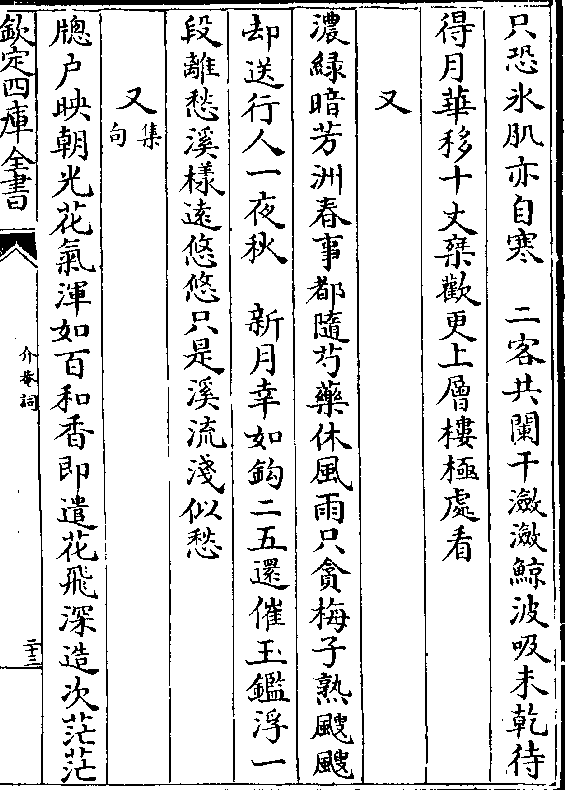 只恐氷肌亦自寒　二客共闌干瀲瀲鯨波吸未乾待
得月華移十丈槩歡更上層樓極處看
又
濃緑暗芳洲春事都隨芍藥休風雨只貪梅子熟颼颼
却送行人一夜秋　新月幸如鈎二五還催玉鑑浮一
段離愁溪様逺悠悠只是溪流淺似愁
又 集句
牕户映朝光花氣渾如百和香即遣花飛深造次茫茫
欽定四庫全書
介菴詞
二十三